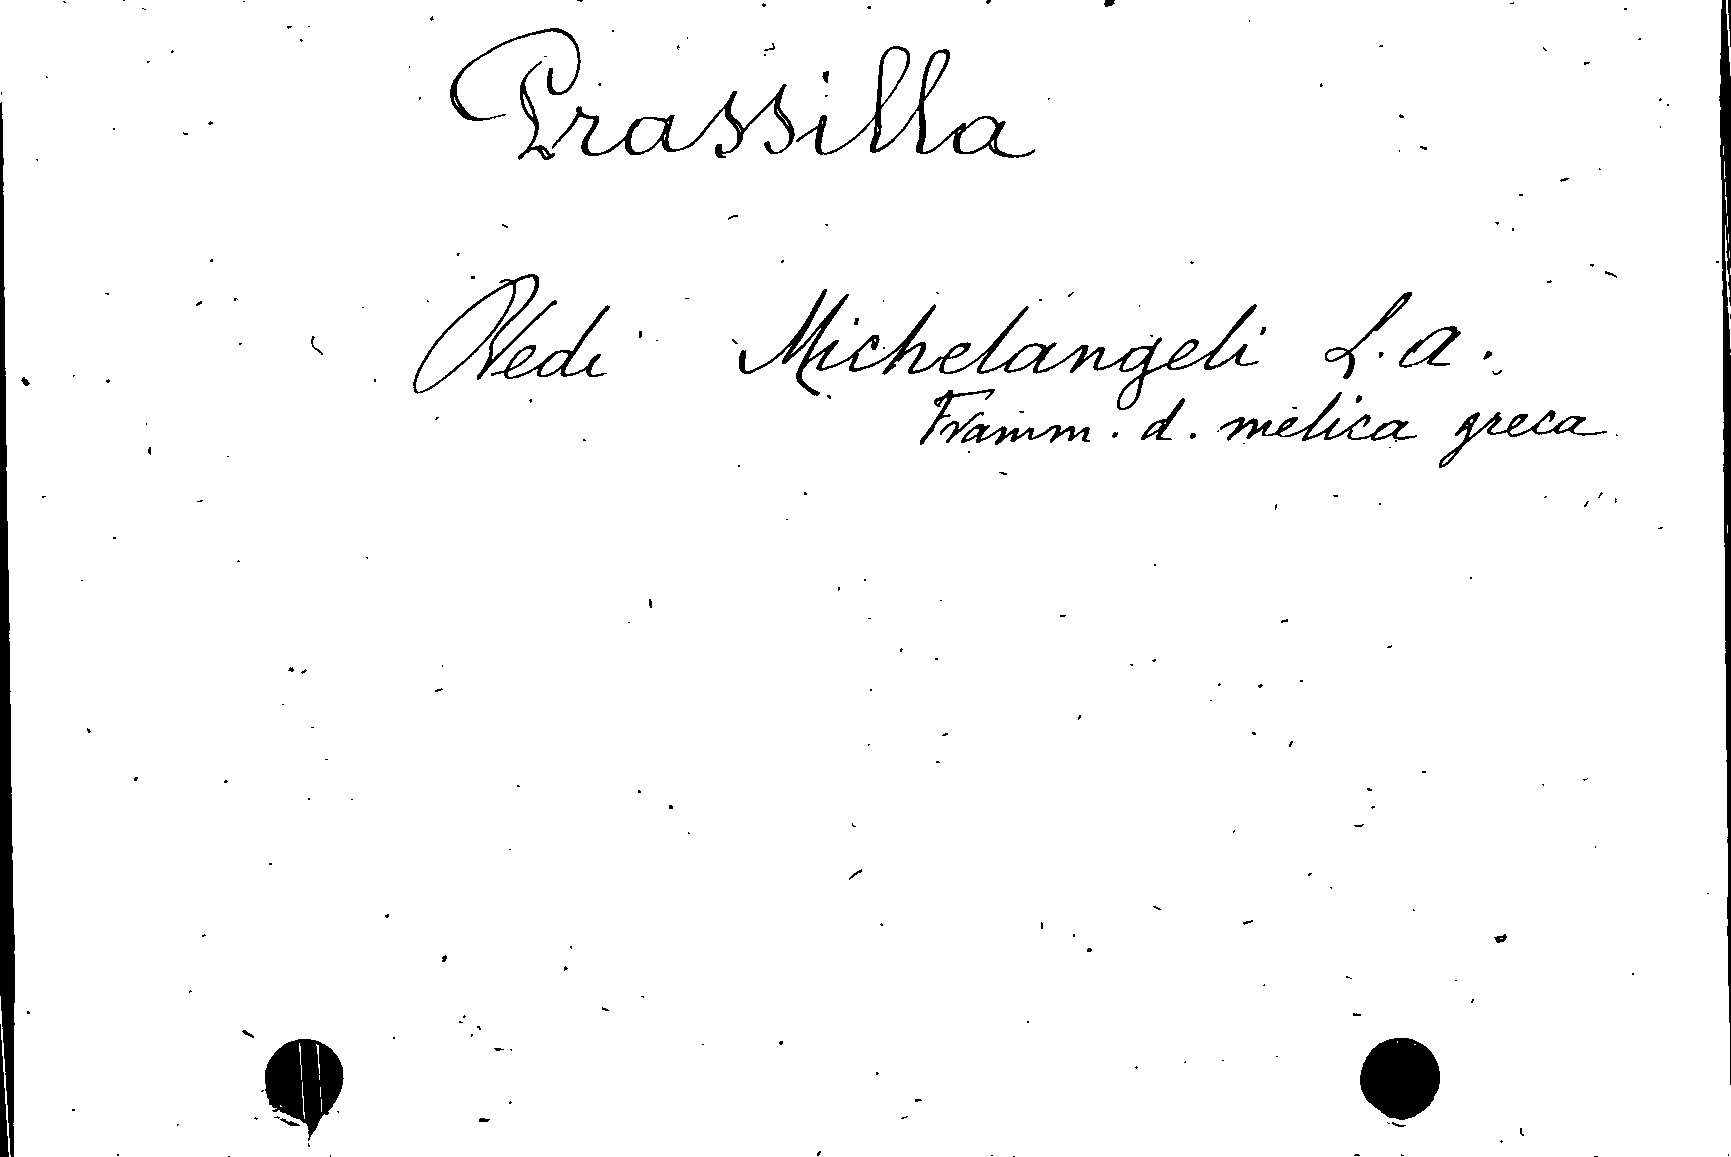 Prassilla
Vedi Michelangeli L. A.
Framm. d. melica greca